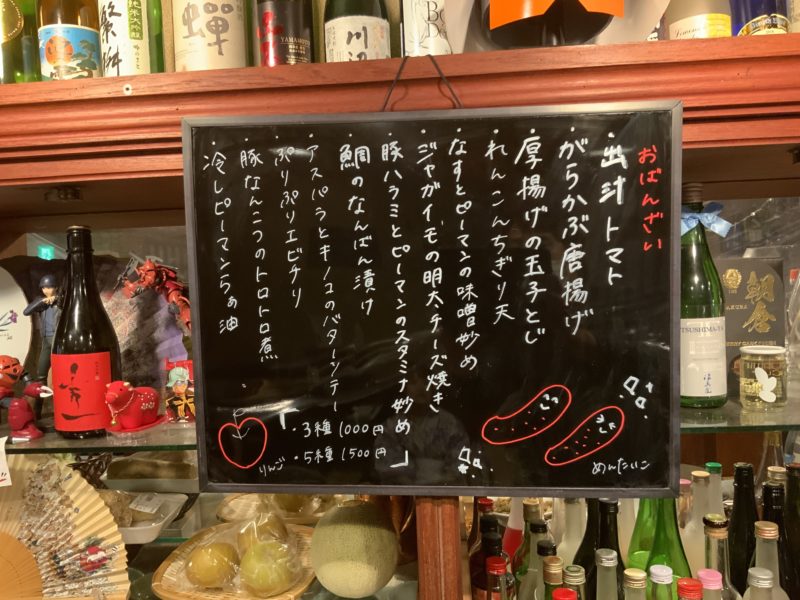 おばんざい
・出汁トマト
・がらかぶ唐揚げ
・厚揚げの玉子とじ
・れんこんちぎり天
・なすとピーマンの味噌炒め
・ジャガイモの明太チーズ焼き
・豚ハラミとピーマンのスタミナ炒め
・鯛のなんばん漬け
・アスパラとキノコのバターソテー
・ぷりぷりエビチリ
・豚なんこつのトロトロ煮
・冷しピーマンらぁ油
「・3種1000円
・5種1500円」
りんご
めんたいこ
蝉
川辺
朝倉